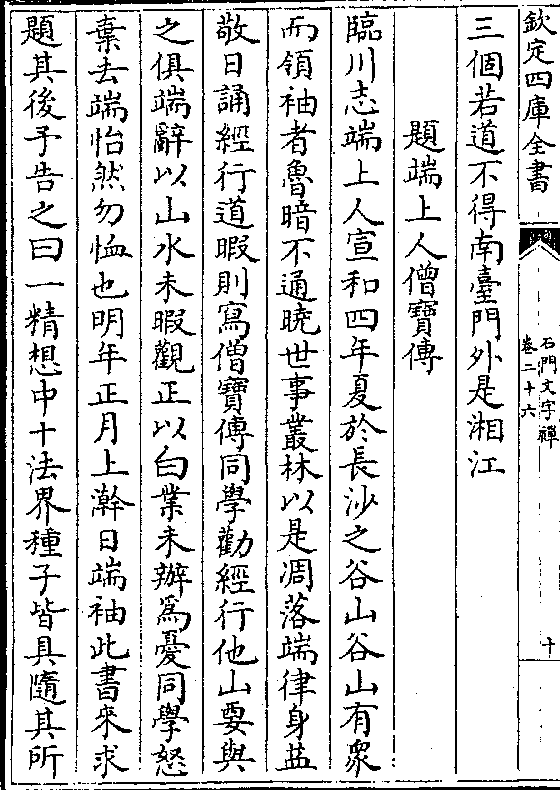 欽定四庫全書
石門文字禪
卷二十六
十
三個若道不得南臺門外是湘江
題端上人僧寶傳
臨川志端上人宣和四年夏於長沙之谷山谷山有衆
而領袖者魯暗不通曉世事叢林以是凋落端律身益
敬日誦經行道暇則寫僧寶傳同學勸經行他山要與
之俱端辭以山水未暇觀正以白業未辦為憂同學怒
棄去端怡然勿恤也明年正月上澣日端袖此書來求
題其後予告之曰一精想中十法界種子皆具隨其所